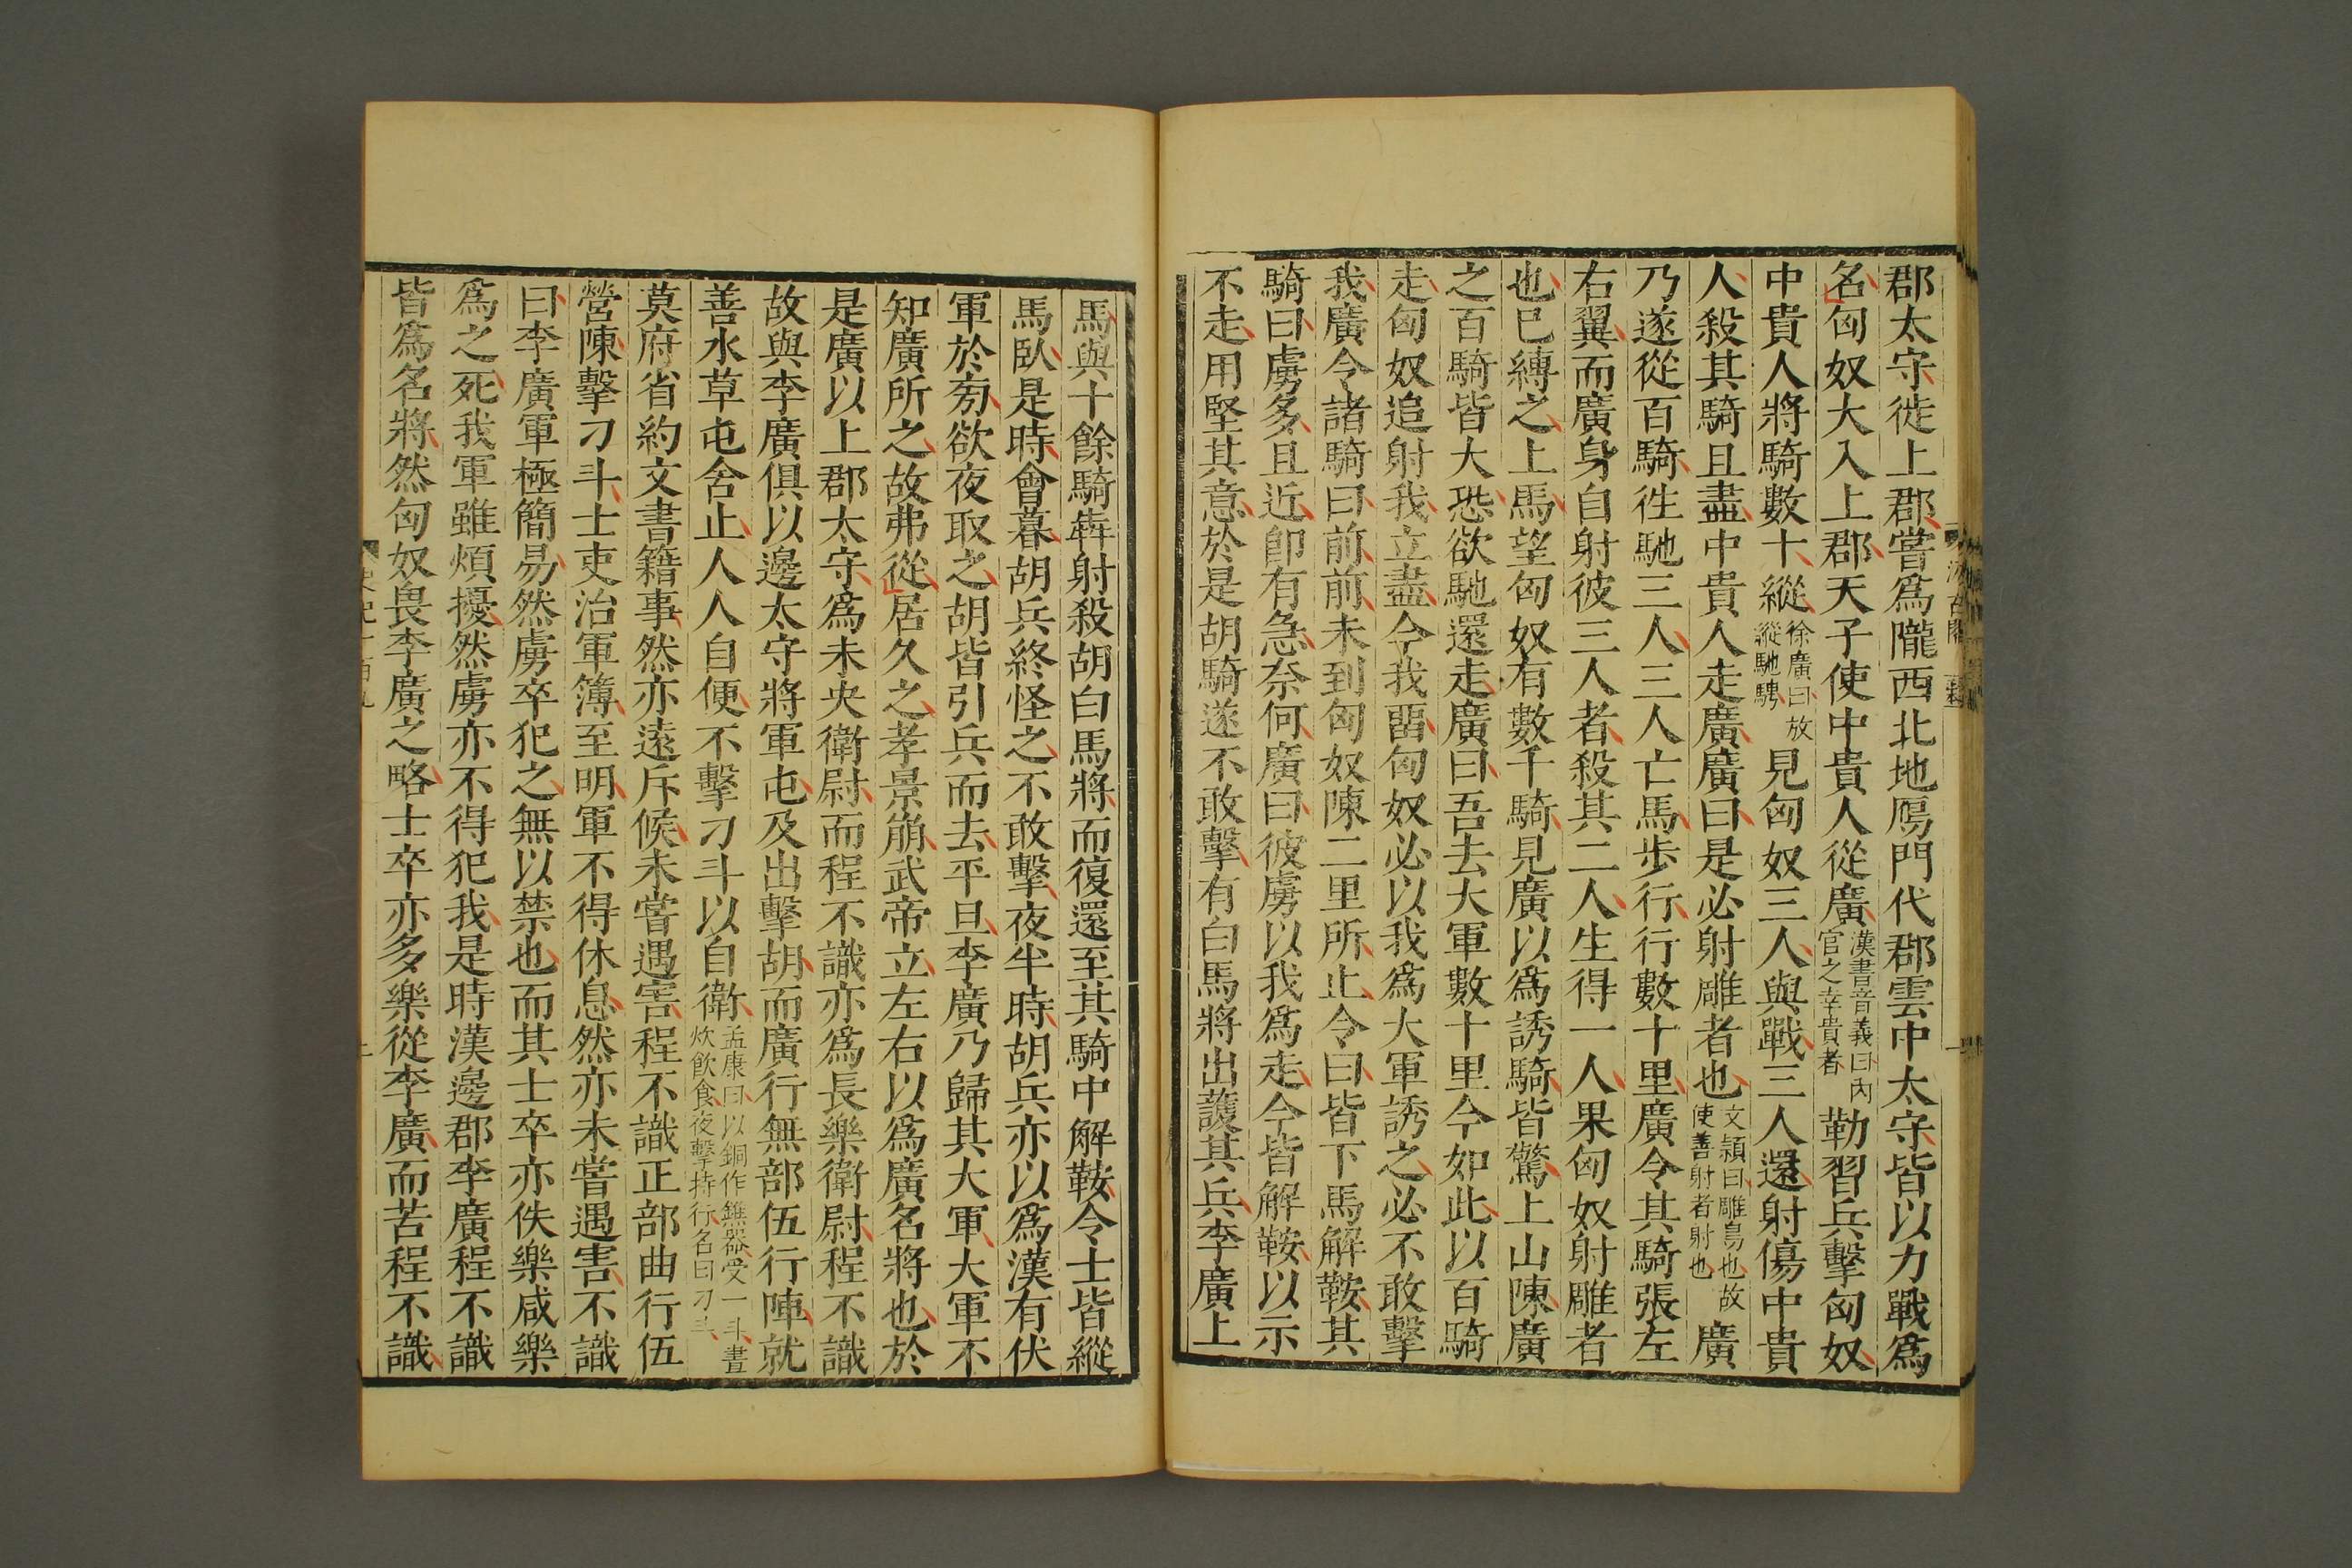 郡太守徙上郡嘗爲隴西北地鴈門代郡雲中太守皆以力戰爲
名匈奴大入上郡天子使中貴人從廣漢書音義曰內官之幸貴者勒習兵擊匈奴
中貴人將騎數十縱徐廣曰放縱馳騁見匈奴三人與戰三人還射傷中貴
人殺其騎且盡中貴人走廣廣曰是必射雕者也文頴曰雕鳥也故使善射者射也廣
乃遂從百騎徃馳三人三人亡馬步行行數十里廣令其騎張左
右翼而廣身自射彼三人者殺其二人生得一人果匈奴射雕者
也已縛之上馬望匈奴有數千騎見廣以爲誘騎皆驚上山陳廣
之百騎皆大恐欲馳還走廣曰吾去大軍數十里今如此以百騎
走匈奴追射我立盡今我畱匈奴必以我爲大軍誘之必不敢擊
我廣令諸騎曰前前未到匈奴陳二里所止令曰皆下馬解鞍其
騎曰虜多且近卽有急奈何廣曰彼虜以我爲走今皆解鞍以示
不走用堅其意於是胡騎遂不敢擊有白馬將出護其兵李廣上
馬與十餘騎犇射殺胡白馬將而復還至其騎中解鞍令士皆縱
馬臥是時會暮胡兵終怪之不敢擊夜半時胡兵亦以爲漢有伏
軍於旁欲夜取之胡皆引兵而去平旦李廣乃歸其大軍大軍不
知廣所之故弗從居久之孝景崩武帝立左右以爲廣名將也於
是廣以上郡太守爲未央衛尉而程不識亦爲長樂衛尉程不識
故與李廣俱以邊太守將軍屯及出擊胡而廣行無部伍行陣就
善水草屯舍止人人自便不擊刁斗以自衛孟康曰以銅作鐎器受一斗晝炊飲食夜擊持行名曰刁斗
莫府省約文書籍事然亦遠斥候未嘗遇害程不識正部曲行伍
營陳擊刁斗士吏治軍簿至明軍不得休息然亦未嘗遇害不識
曰李廣軍極簡易然虜卒犯之無以禁也而其士卒亦佚樂咸樂
爲之死我軍雖煩擾然虜亦不得犯我是時漢邊郡李廣程不識
皆爲名將然匈奴畏李廣之略士卒亦多樂從李廣而苦程不識